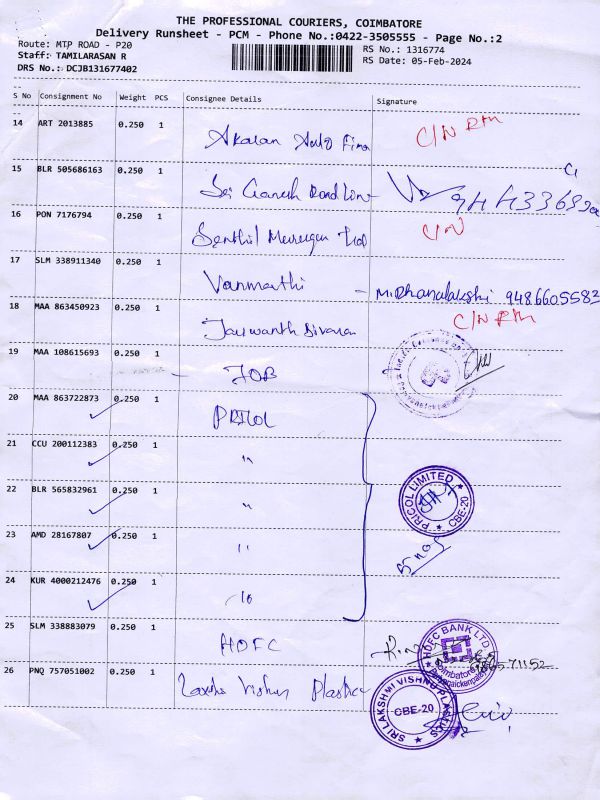 THE PROFESSIONAL COURIERS, COIMBATORE
Delivery Runsheet - PCM - Phone No.:0422-3505555 - Page No.:2
Route: MTP ROAD - P20 RS No.: 1316774
Staff: TAMILARASAN R RS Date: 05-Feb-2024
DRS No.: DCJB131677402
S No Consignment No Weight PCS Consignee Details Signature
14 ART 2013885 0.250 1 C/N RM
15 BLR 505686163 0.250 1 Sri Ganesh Roadline
16 PON 7176794 0.250 1 Senthil Murugan C/N
17 SLM 338911340 0.250 1 Vanmathi - M.Dhanalakshi 9486605583
18 MAA 863450923 0.250 1 C/N RM
19 MAA 108615693 0.250 1 IOB
20 MAA 863722873 0.250 1 PRICOL
21 CCU 200112383 0.250 1 "
22 BLR 565832961 0.250 1 "
PRICOL LIMITED CBE-20
23 AMD 28167807 0.250 1 "
5 nos
24 KUR 4000212476 0.250 1 "
25 SLM 338883079 0.250 1 HDFC
HDFC BANK LTD
26 PNQ 757051002 0.250 1 Laxshu Vishnu Plastics
SRI LAKSHMI VISHNU PLASTICS CBE-20